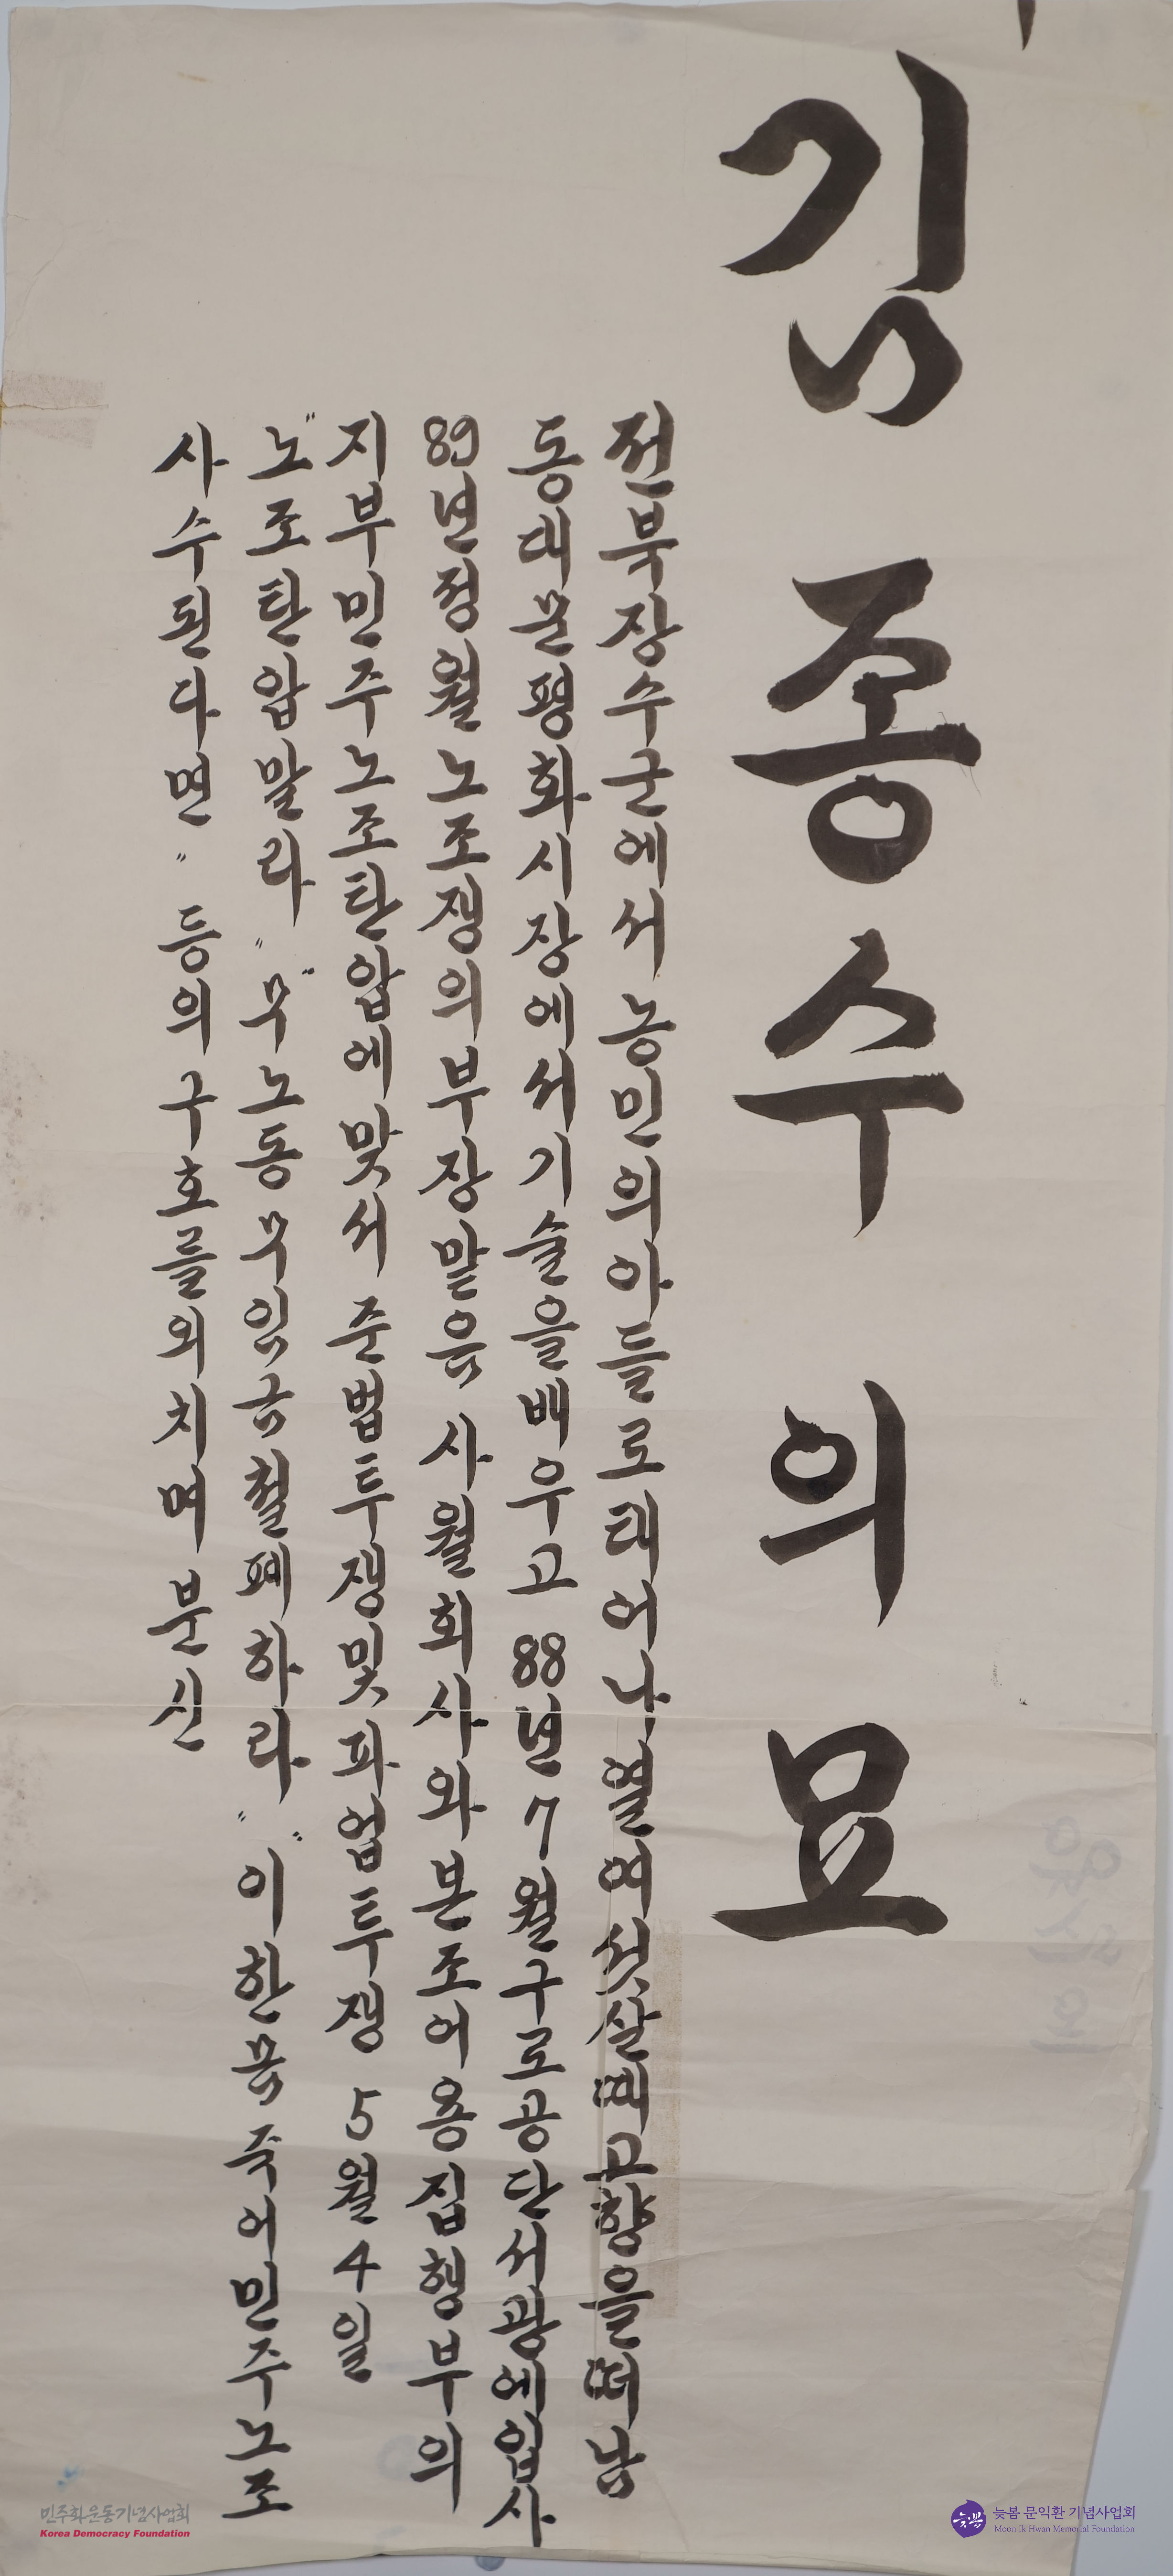 김종수의 묘
전북장수군에서 농민의아들로태어나 열여섯살때고향을떠남
동대문평화시장에서기술을배우고 88년7월구로공단서광에입사
89년정월노조쟁의부장맡음 사월회사와본조어용집행부의
지부민주노조탄압에맞서 준법투쟁및파업투쟁 5월4일
"노조탄압말라" "무노동무임금철폐하라" "이한몸죽어민주노조
사수된다면" 등의구호를외치며분신
민주화운동기념사업회
Korea Democracy Foundation
늦봄
늦봄 문익환 기념사업회
Moon Ik Hwan Memorial Foundation